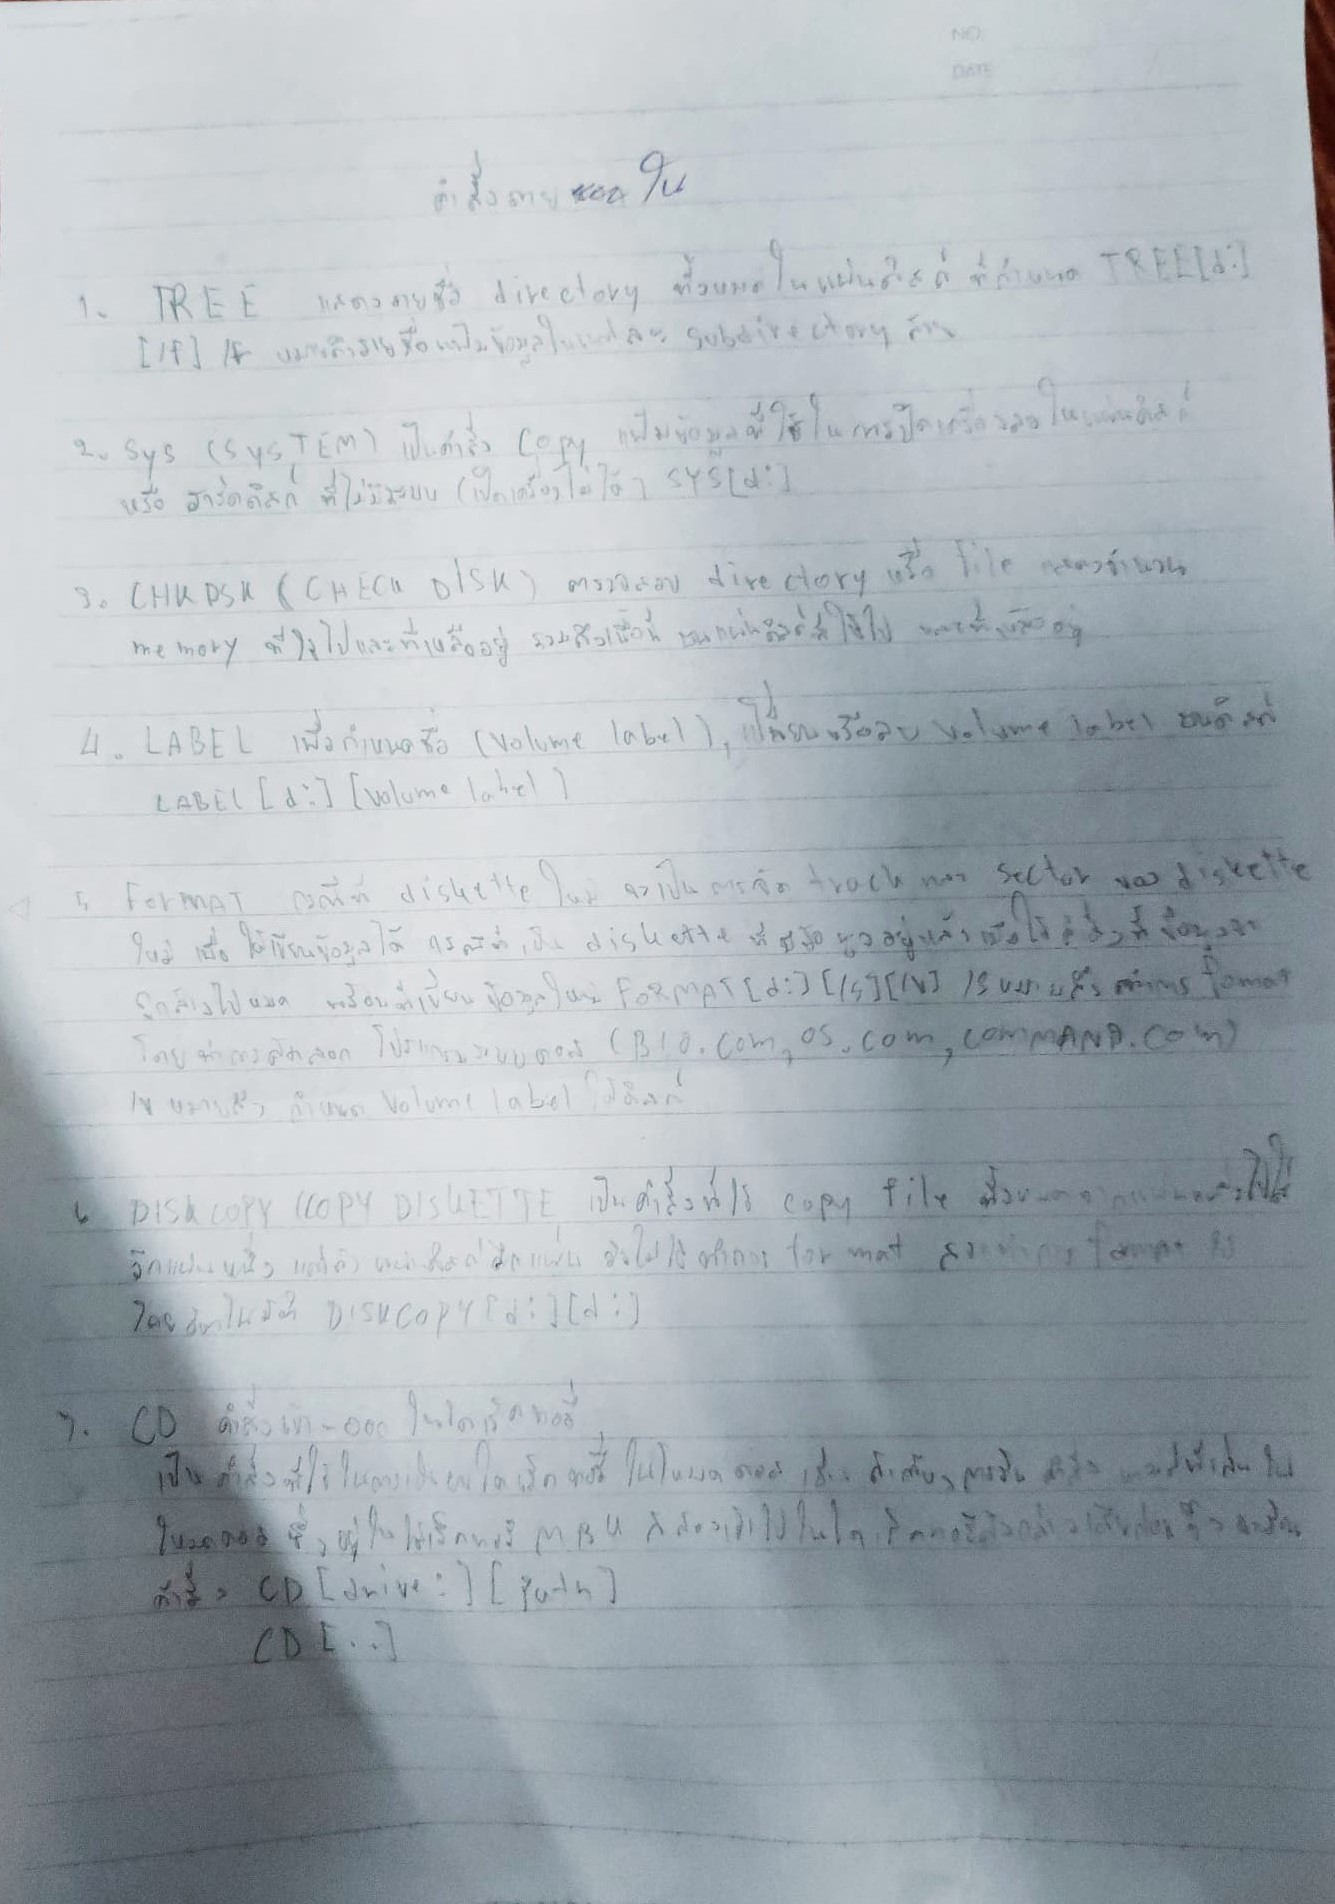 NO.
DATE
คำสั่งภายนอก ใน
1. TREE แสดงรายชื่อ directory ทั้งหมดในแผ่นดิสก์ ที่กำหนด TREE[d:]
[/f] /f หมายถึงรายชื่อแฟ้มข้อมูลในแต่ละ subdirectory ด้วย
2. SYS (SYSTEM) เป็นคำสั่ง Copy แฟ้มข้อมูลที่ใช้ในการเปิดเครื่องลงในแผ่นดิสก์
หรือ ฮาร์ดดิสก์ ที่ไม่มีระบบ (เปิดเครื่องไม่ได้) SYS[d:]
3. CHKDSK (CHECK DISK) ตรวจสอบ directory หรือ file แสดงจำนวน
memory ที่ใช้ไปและที่เหลืออยู่ รวมถึงเนื้อที่ บนแผ่นดิสก์ที่ใช้ไป และที่เหลืออยู่
4. LABEL เพื่อกำหนดชื่อ (Volume label), เปลี่ยนหรือลบ volume label บนดิสก์
LABEL [d:] [volume label]
5 FORMAT กรณีที่ diskette ใหม่ จะเป็นการจัด track และ sector ของ diskette
ใหม่ เพื่อ ให้เขียนข้อมูลได้ กรณีที่เป็น diskette ที่มีข้อมูลอยู่แล้วเมื่อใช้คำสั่งนี้ข้อมูลจะ
ถูกล้างไปหมด พร้อมที่เขียน ข้อมูลใหม่ FORMAT [d:] [/s][/v] /s หมายถึง ทำการ fomat
โดยทำการคัดลอก โปรแกรมระบบดอส (BIO.com, OS.com, COMMAND.COM)
/v หมายถึง กำหนด volume label ให้ดิสก์
6 DISKCOPY (COPY DISKETTE เป็นคำสั่งที่ใช้ copy file ทั้งหมดจากแผ่นหนึ่งไปใส่
อีกแผ่นหนึ่ง แต่ถ้า แผ่นดิสก์อีกแผ่น ยังไม่ได้ทำการ format จะทำการ format ให้
โดยอัตโนมัติ DISKCOPY [d:][d:]
7. CD คำสั่งเข้า-ออก ในไดเร็คทอรี่
เป็นคำสั่งที่ใช้ในการเปลี่ยนไดเร็คทอรี่ ในโหมดดอส เช่น ถ้าต้องการรัน คำสั่ง
โหมดดอส ซึ่งอยู่ในไดเร็คทอรี่ MBK ก็ต้องเข้าไปในไดเร็คทอรี่ดังกล่าวเสียก่อนจึงจะรัน
คำสั่ง CD [drive:] [path]
CD [..]